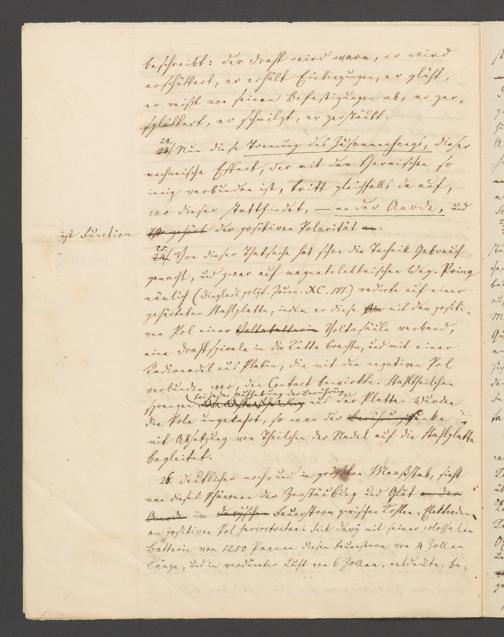 beschreibt: der Draht wird warm, er wird
erschüttert, er erhält Einbiegungen, er glüht,
er reißt von seinen Befestigungen ab, er zer-
splittert, er schmilzt, er zerstäubt.
24/ Nun diese Trennung des Zusammenhangs, dieser
mechanische Effect, der mit dem thermischen so
innig verbunden ist, tritt gleichfalls da auf,
wo dieser stattfindet, – an der Anode, und
ist Function der positiven Polarität
25/ Von dieser Thatsache hat schon die Technik Gebrauch
gemacht, und zwar auf magnetelektrischem Weg. Pring
nämlich (Dinglers polyt. Journ. XC. 181) radirte auf einer
gehärteten Stahlplatte, indem er diese mit dem positi-
ven Pol einer Voltasäule verband,
eine Drahtspirale in die Kette brachte, und mit einer
Radirnadel aus Platin, die mit dem negativen Pol
verbunden war, den Contact bewirkte. Stahltheilchen
sprangen bei jeder Aufhebung der Berührung
aus der Platte. Wurden
die Pole umgekehrt, so war der
mit Absetzung von Theilchen der Nadel auf die Stahlplatte
begleitet.
26. Deutlicher noch, und in größtem Maaßstab, sieht
man dieses Phänomen der Zerstäubung und Glut
im Feuerstrom zwischen Kohlen-Elektroden
am positiven Pol hervortreten: mit seiner colossalen
Batterie von 1250 Paaren diesen Feuerstrom von 4 Zollen
Länge, und in verdünnter Luft von 6 Zollen, be-